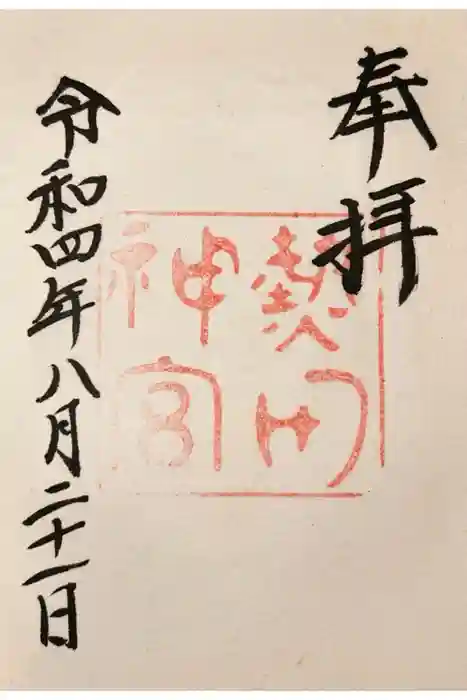 奉拝
熱田
神宮
令和四年八月二十一日